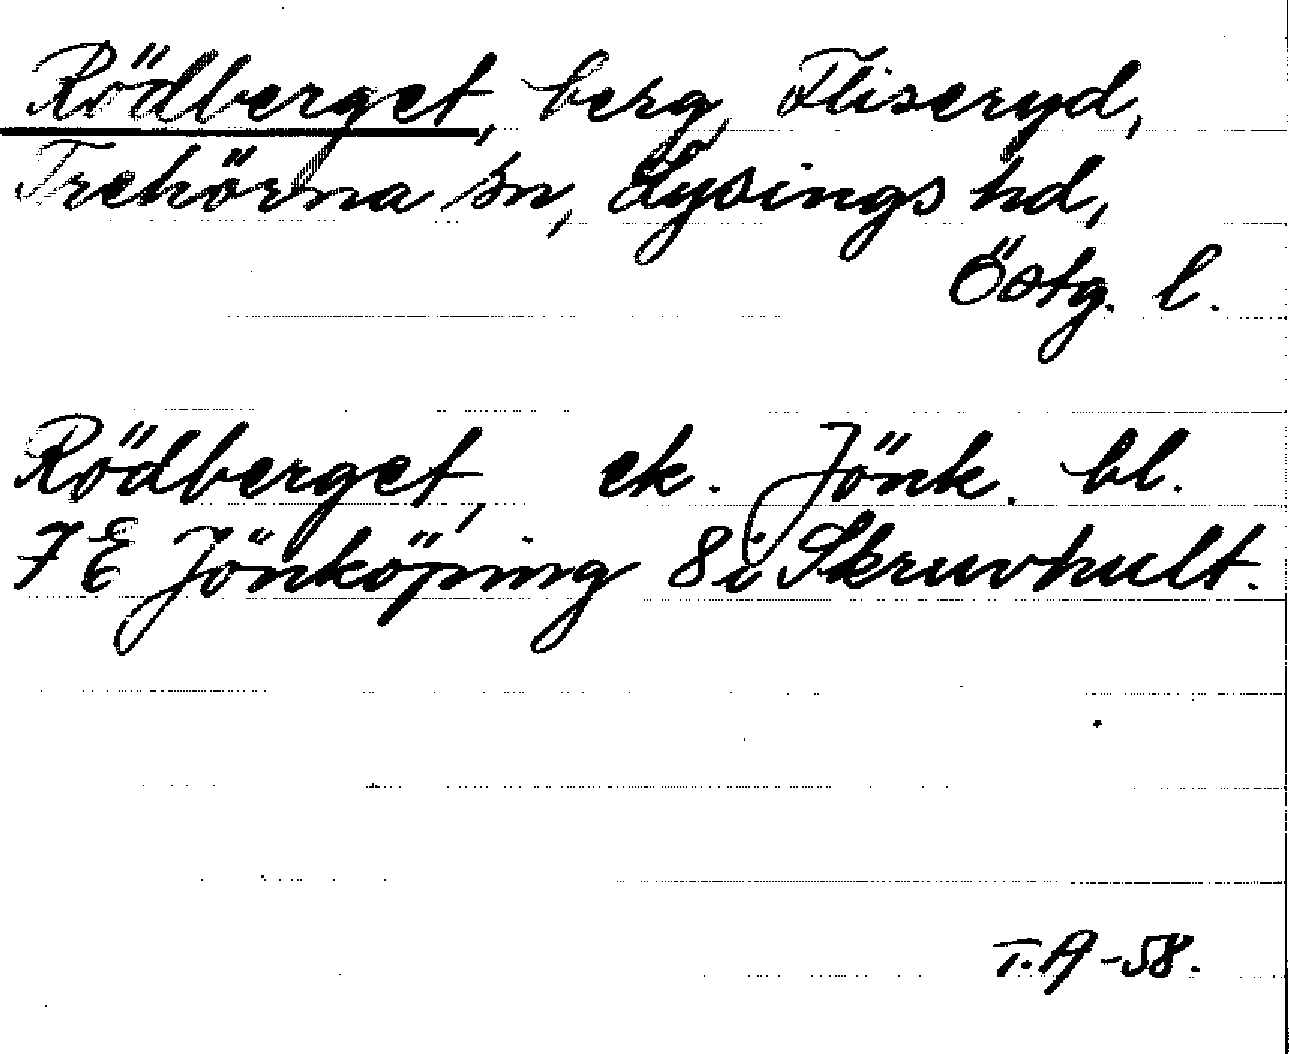 Rödberget, berg, Fliseryd,
Trehörna sn, Lysings hd,
Östg. l.
Rödberget, ek. Jönk. bl.
7 E Jönköping 8 i Skruvhult.
T.A -58.